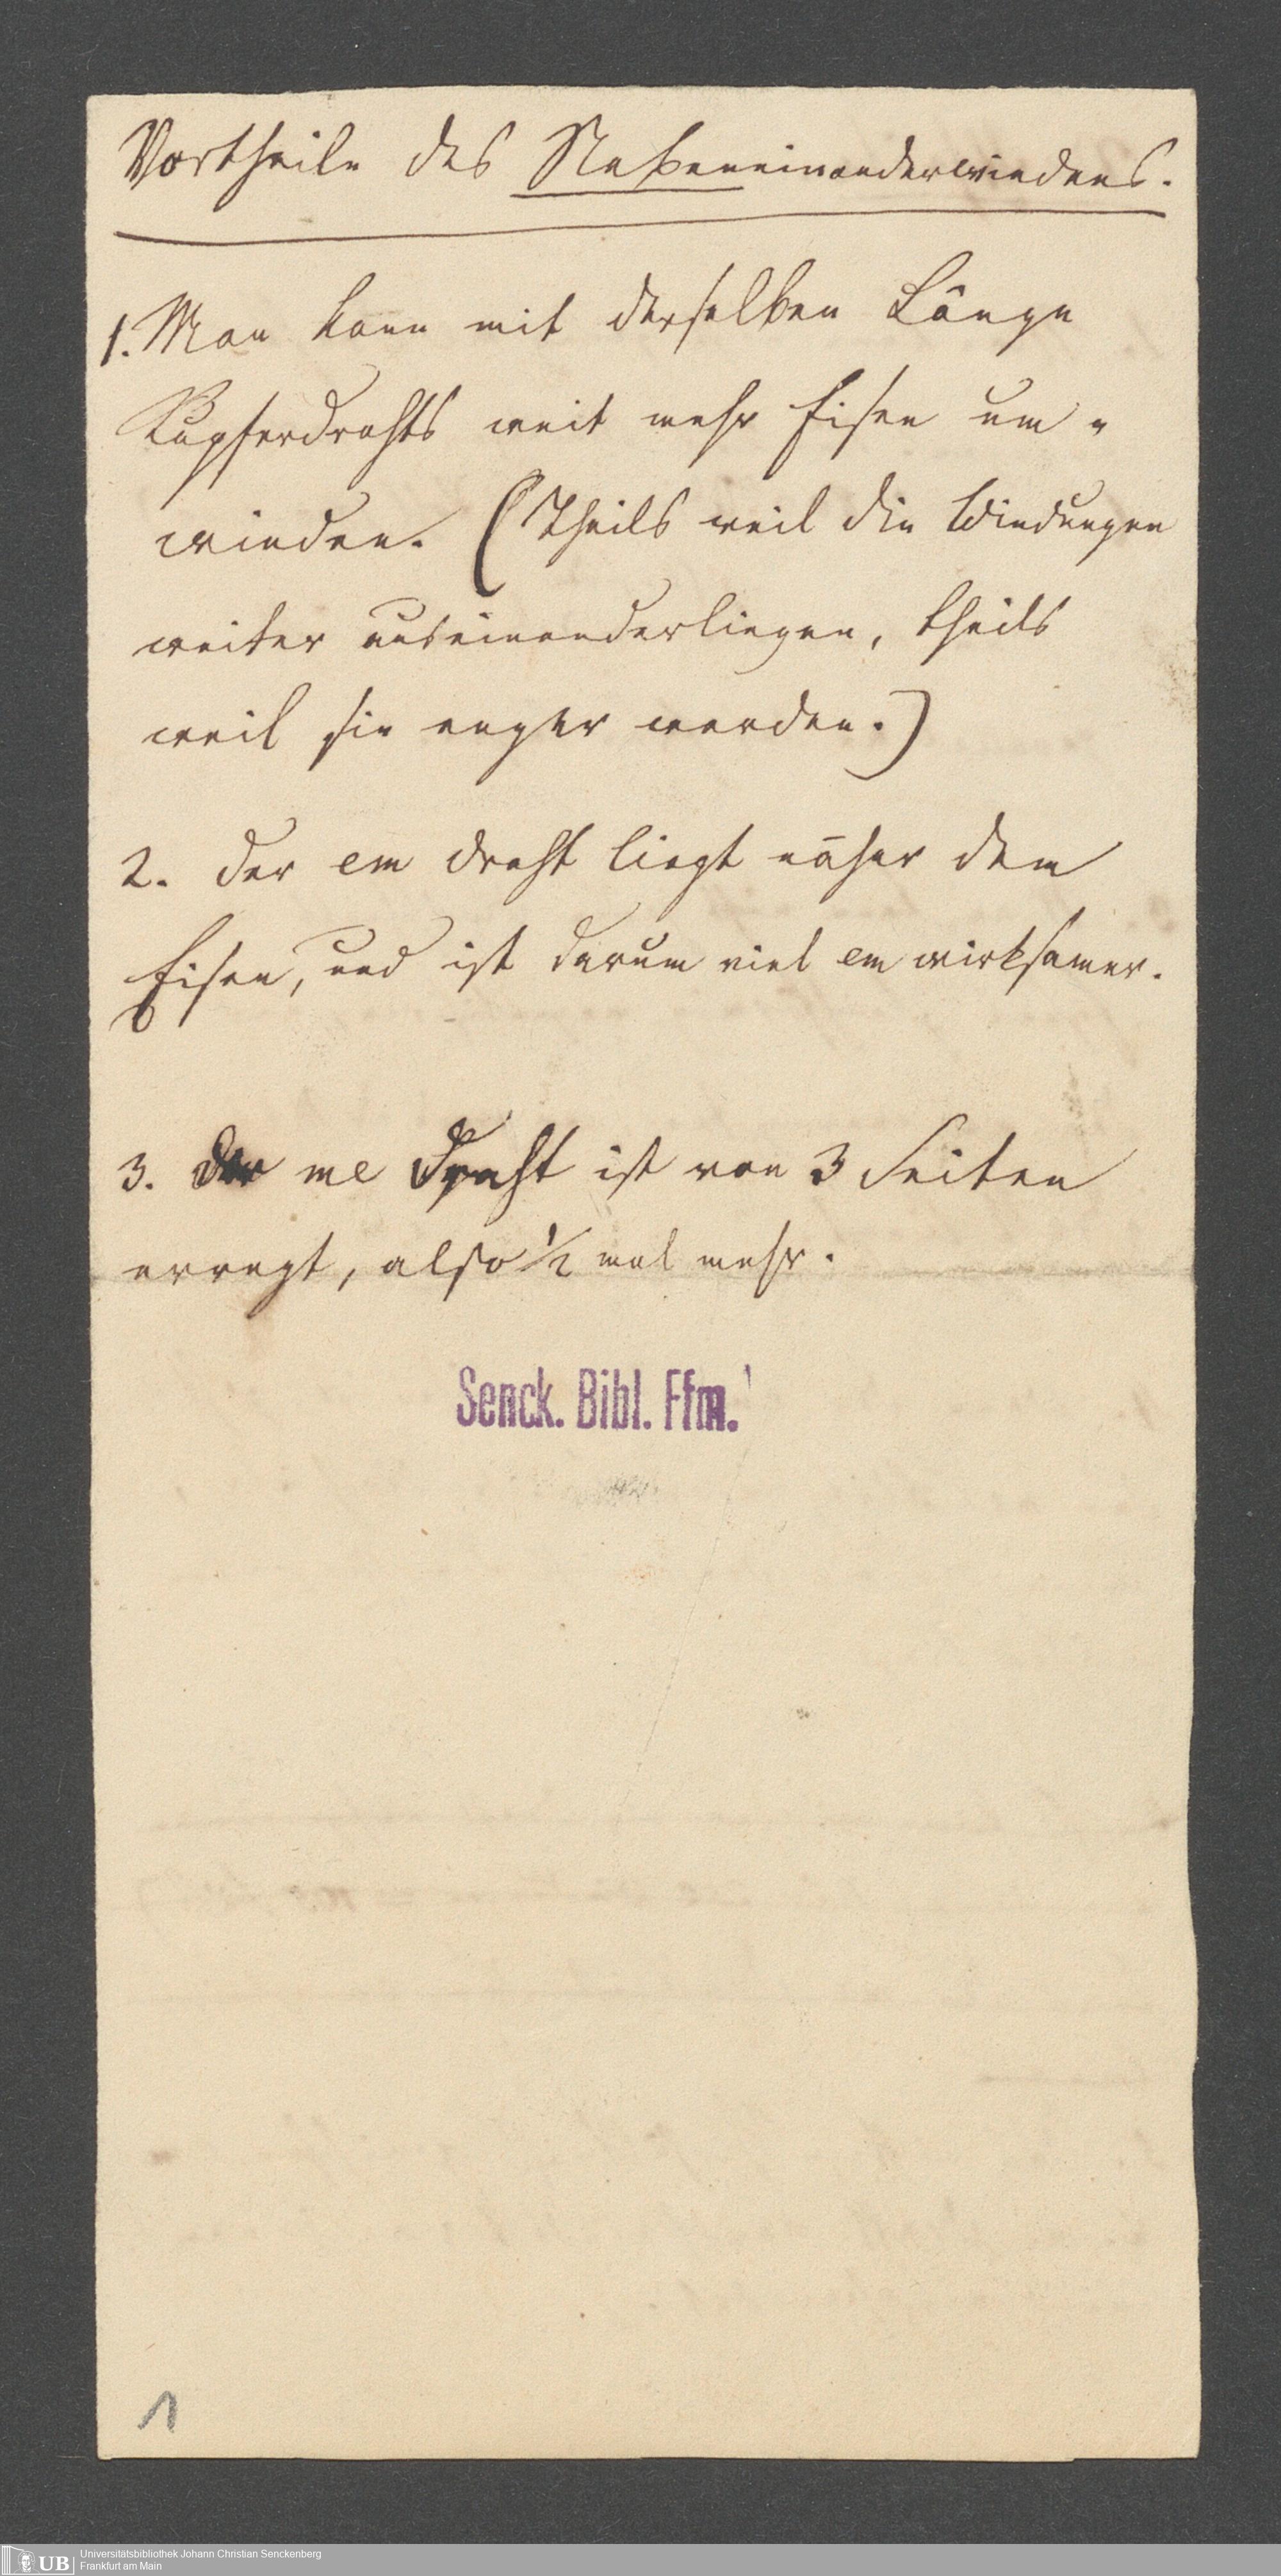 Vortheile des Nebeneinanderwindens.
1. Man kann mit derselben Länge
Kupferdrahts weit mehr Eisen um-
winden. (Theils weil die Windungen
weiter auseinanderliegen, theils
weil sie enger werden.)
2. der em draht liegt näher dem
Eisen, und ist darum viel em wirksamer.
3. der me Draht ist von 3 Seiten
erregt, also ½ mal mehr.
Senck. Bibl. Ffm.
1
UB Universitätsbibliothek Johann Christian Senckenberg
Frankfurt am Main